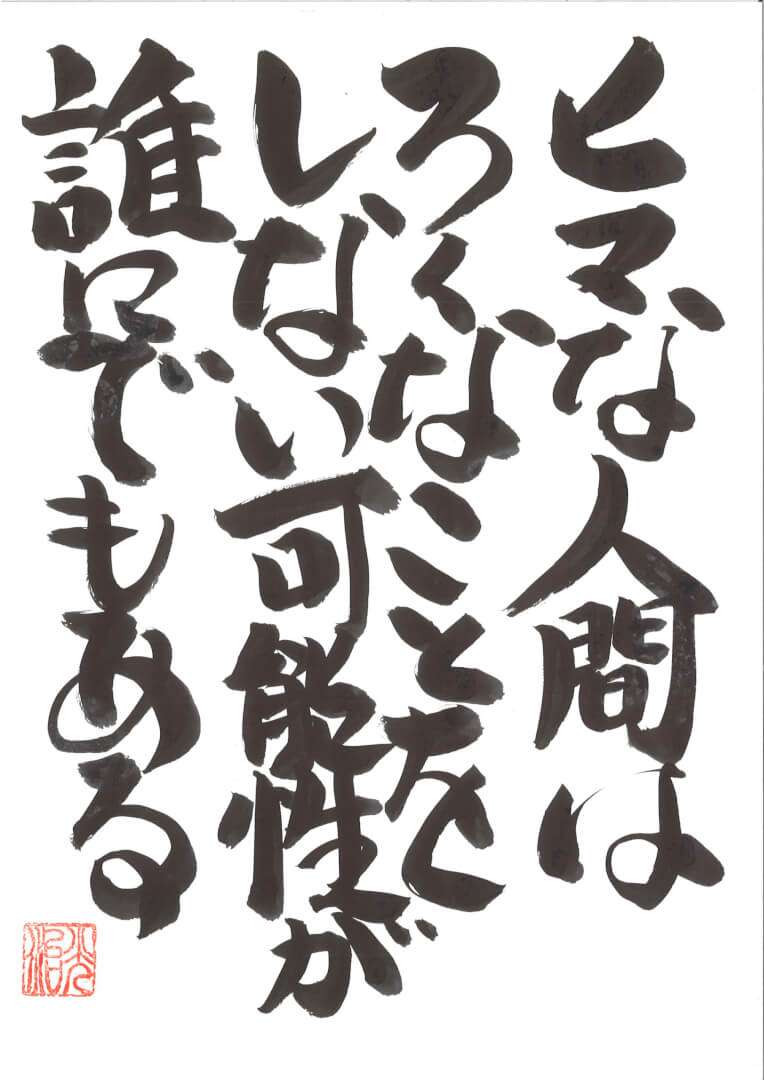 ヒマな人間は
ろくなことを
しない可能性が
誰にでもある